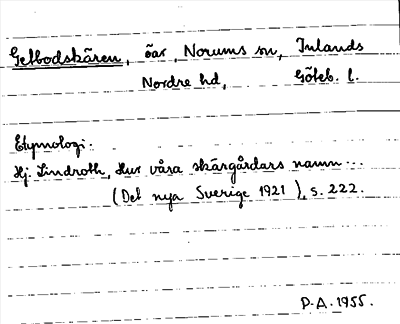 Getbodskären, öar, Norums sn, Inlands
Nordre hd, Göteb. l.
Etymologi:
Hj. Lindroth, Hur våra skärgårdars namn...
(Det nya Sverige 1921), s. 222.
P.A. 1955.